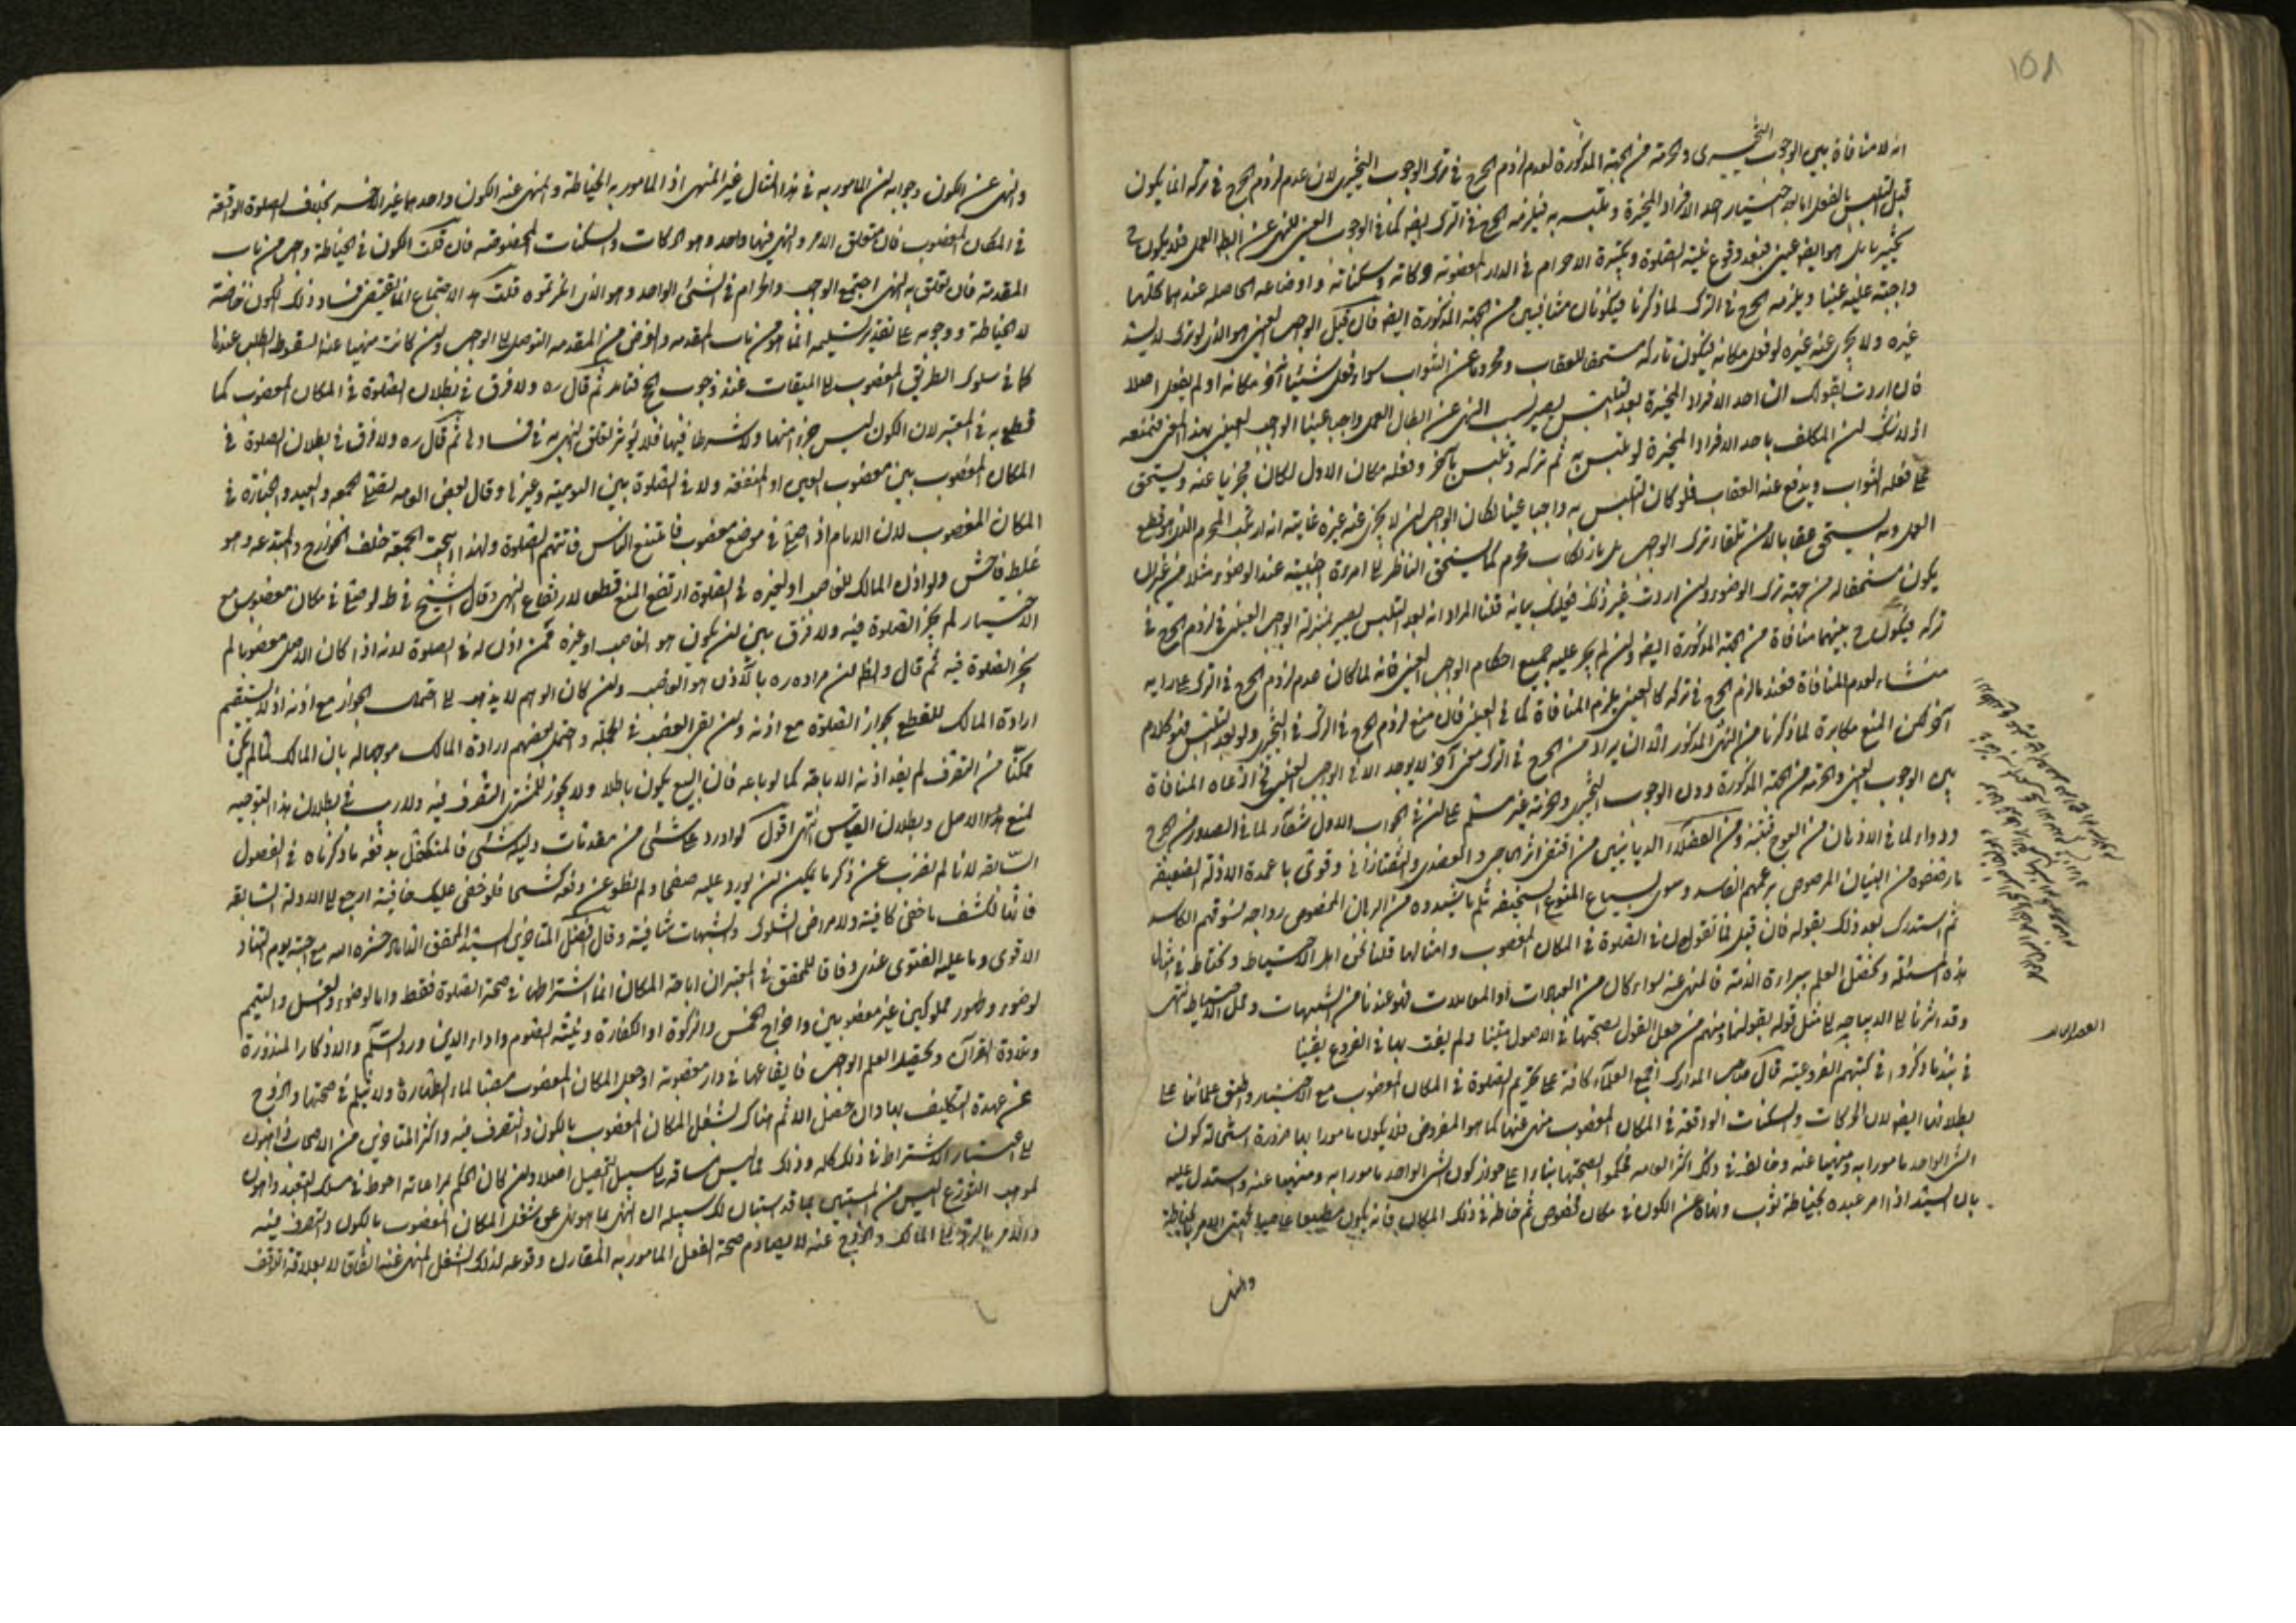 ١٥٨
انه لا منافاة بين الوجوب التخييرى والحرمة من الجهة المذكورة لعدم لزوم الحرج فى ترك الوجوب التخييرى لان عدم لزوم الحرج فى تركه انما يكون
قبل التلبس بالفعل اما بعد اختيار احد الافراد المخيرة وتلبسه به فيلزمه الحرج فى الترك ايضا كما فى الوجوب العينى للنهى عن ابطال العمل فلا يكون ح
تخيير بل هو ايضا عينى فبعد وقوع نية الصلوة وتكبيرة الاحرام فى الدار المغصوبة حركاته وسكناته واوضاعه الحاصلة عندهما كلها
واجبة عليه عينا ويلزمه الحرج فى الترك لما ذكرنا فيكونان متنافيين من الجهة المذكورة ايضا فان قيل الواجب العينى هو الذى لو ترك لا يسد
غيره ولا يجزى عنه غيره لو فعل مكانه فيكون تاركه مستحقا للعقاب ومحروما عن الثواب سواء فعل شيئا آخر مكانه او لم يفعل اصلا
فان اردت بقولك ان احد الافراد المخيرة بعد التلبس يصير بسبب النهى عن ابطال العمل واجبا عينيا الواجب العينى بهذا المعنى فنمنعه
اذ لا شك ان المكلف باحد الافراد المخيرة لو تلبس به ثم تركه وتلبس بآخر وفعله مكان الاول لكان مجزيا عنه ويستحق
على فعله الثواب ويدفع عنه العقاب فلو كان التلبس به واجبا عينيا لكان الواجب ان لا يجزى عنه غيره غايته انه ارتكب المحرم الذى هو قطع
العمل وبه يستحق عقابا لا من تلقاء ترك الواجب بل بارتكاب محرم كما يستحق الناظر الى امرءة اجنبية عند الوضوء مثلا من غير ان
يكون مستحقا له من جهة ترك الوضوء وان اردت غير ذلك فعليك بيانه قلنا المراد انه بعد التلبس يصير بمنزلة الواجب العينى فى لزوم الحرج فى
تركه فيكون ح بينهما منافاة من الجهة المذكورة ايضا وان لم يجر عليه جميع احكام الواجب العينى فانه لما كان عدم لزوم الحرج فى الترك على رايه
منشاء لعدم المنافاة فعند ما لزم الحرج فى تركه كالعينى يلزم المنافاة كما فى العينى فان منع لزوم الحرج فى الترك فى التخييرى ولو بعد التلبس فهو كلام
آخر لكن المنع مكابرة لما ذكرنا من النهى المذكور الا ان يراد من الحرج فى الترك معنى آخر لا يوجد الا فى الواجب العينى فادعاء المنافاة
بين الوجوب العينى والحرمة من الجهة المذكورة دون الوجوب التخييرى والحرمة غير مسلم على ان فى الجواب الاول شفاء لما فى الصدور من الحرج
ودواء لما فى الاذهان من العوج فتنبه ومن العضلاء الديانيين من اقتفى اثر الحاجبى والعضدى والتفتازانى وقوى باعمدة الادلة الضعيفة
ما رفضوه من البنيان المرصوص بزعمهم الفاسد وسوى بسياع المنوع السخيفة ثلم ما شيدوه من البرهان المخصوص رواجه بسوقهم الكاسد
ثم استدرك بعد ذلك بقوله فان قيل فما تقولون فى الصلوة فى المكان المغصوب وامثالها قلنا نحن اهل الاحتياط ونحتاط فى مثل
هذه المسئلة وتحصيل العلم ببراءة الذمة فالمنهى عنه سواء كان من العبادات او المعاملات فهو عندنا من الشبهات ومحل الاحتياط انتهى
وقد اشرنا الى الديباجه الى مثل قوله بقولنا ومنهم من جعل القول بصحتها فى الاصول متينا ولم يفت بها فى الفروع يقينا
فى نبذ ما ذكروا فى كتبهم الفروعية قال صاحب المدارك اجمع العلماء كافة على تحريم الصلوة فى المكان المغصوب مع الاختيار واطبق علمائنا على
بطلانها ايضا لان الحركات والسكنات الواقعة فى المكان المغصوب منهى عنها كما هو المفروض فلا يكون مامورا بها ضرورة استحالة كون
الشئ الواحد مامورا به ومنهيا عنه وخالف فى ذلك اكثر العامة فحكموا بصحتها بناء على جواز كون الشئ الواحد مامورا به ومنهيا عنه واستدل عليه
بان السيد اذا امر عبده بخياطة ثوب ونهاه عن الكون فى مكان مخصوص ثم خاطه فى ذلك المكان فانه يكون مطيعا عاصيا لجهتى الامر بالخياطة
والنهى
والنهى عن الكون وجوابه ان المامور به فى هذا المثال غير المنهى اذ المامور به الخياطة والمنهى عنه الكون واحدهما غير الاخر بخلاف الصلوة الواقعة
فى المكان المغصوب فان متعلق الامر والنهى فيها واحد وهو الحركات والسكنات المخصوصة فان قلت الكون فى الخياطة واجب من باب
المقدمة فان تعلق به النهى اجتمع الواجب والحرام فى الشئ الواحد وهو الذى انكرتموه قلت هذا الاجتماع انما يقتضى فساد ذلك الكون خاصة
لا الخياطة ووجوبه على تقدير تسليمه انما هو من باب المقدمة والغرض من المقدمه التوصل الى الواجب وان كانت منهيا عنها لسقوط الطلب عندها
كما فى سلوك الطريق المغصوب الى الميقات عند وجوب الحج فتامل ثم قال ره ولا فرق فى بطلان الصلوة فى المكان المغصوب كما
قطع به فى المعتبر لان الكون ليس جزء منها ولا شرطا فيها فلا يؤثر تعلق النهى به فى فسادها ثم قال ره ولا فرق فى بطلان الصلوة فى
المكان المغصوب بين مغصوب العين او المنفعة ولا فى الصلوة بين اليومية وغيرها وقال بعض العامه يصلى الجمعه والعيد والجنازة فى
المكان المغصوب لان الامام اذا صلى فى موضع مغصوب فامتنع الناس فاتتهم الصلوة ولهذا ابيحت الجمعة خلف الخوارج والمبتدعه وهو
غلط فاحش ولو اذن المالك للغاصب او لغيره فى الصلوة ارتفع المنع قطعا لارتفاع النهى وقال الشيخ فى ط لو صلى فى مكان مغصوب مع
الاختيار لم يجز الصلوة فيه ولا فرق بين ان يكون هو الغاصب او غيره ممن اذن له فى الصلوة لانه اذا كان الاصل مغصوبا لم
يجز الصلوة فيه ثم قال والظ ان مراده ره بالآذن هو الغاصب وان كان الوهم لا يذهب الى احتمال الجواز مع اذنه اذ لا يستقيم
ارادة المالك للقطع بجواز الصلوة مع اذنه وان بقى الغصب فى الجملة واحتمل بعضهم ارادة المالك موجها له بان المالك لما لم يكن
ممكنا من التصرف لم يفد اذنه الاباحة كما لو باعه فان البيع يكون باطلا ولا يجوز للمشترى التصرف فيه ولا ريب فى بطلان هذا التوجيه
لمنع الاصل وبطلان القياس انتهى اقول لو اورد على شئ من مقدمات دليله شئى فالمتكفل بدفعه ما ذكرناه فى الفصول
السالفه لانا لم نضرب عن ذكر ما يمكن ان يورد عليه صفحا ولم نطو عن دفعه كشحا فلو خفى عليك خافية ارجع الى الادلة السابقه
فانها لكشف ما خفى كافية ولامراض الشكوك والشبهات شافية وقال افضل المتاخرين السيد المحقق الداماد حشره الله مع جده يوم التناد
الاقوى وما عليه الفتوى عندى وفاقا للمحقق فى المعتبر ان اباحة المكان انما اشتراطها فى صحة الصلوة فقط واما الوضوء والغسل والتيمم
لوضوء وطهور مملوكين غير مغصوبين واخراج الخمس والزكوة او الكفارة ونية الصوم واداء الدين ورد السلم والاذكار المنذورة
وتلاوة القرآن وتحصيل العلم الواجب فايقاعها فى دار مغصوبة او جعل المكان المغصوب مصبا لماء الطهارة ولا يثلم فى صحتها والخروج
عن عهدة التكليف بها وان حصل الاثم هناك لشغل المكان المغصوب بالكون والتصرف فيه واكثر المتاخرين من الاصحاب ذاهبون
الى اعتبار الاشتراط فى ذلك كله وذلك مما ليس مساقه الى سبيل التحصيل اصلا وان كان الحكم بمراعاته احوط فى مسلك التعبد واصون
لمذهب التورع اليس من المستبين بما قد استبان لك سبيله ان النهى ما هو نهى عن شغل المكان المغصوب بالكون والتصرف فيه
والامر بالرد الى المالك والخروج عنه لا يصادم صحة الفعل المامور به المقارن وقوعه لذلك الشغل المنهى عنه اتفاقا لا بعلاقة التوقف